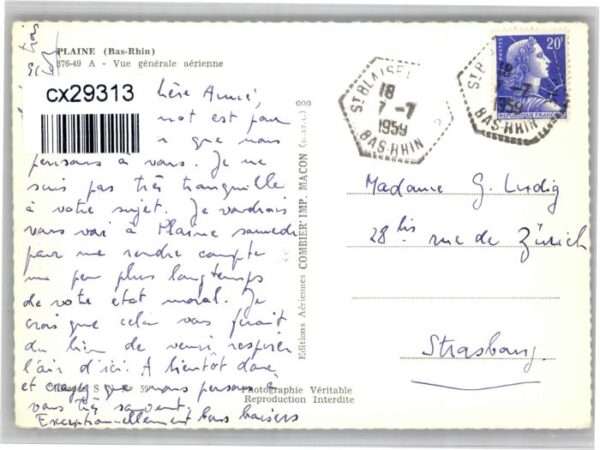 PLAINE (Bas-Rhin)
376-49 A - Vue générale aérienne
cx29313
Chère Amie,
mot est pour
que nous
pensons à vous. Je ne
suis pas très tranquille
à votre sujet. Je voudrais
vous voir à Plaine samedi
pour me rendre compte
un peu plus longtemps
de votre état moral. Je
crois que cela vous ferait
du bien de venir respirer
l'air d'ici. A bientôt donc
et croyez que nous pensons à
vous très souvent.
Exceptionnellement bons baisers
Editions Aériennes COMBIER IMP. MACON
Photographie Véritable
Reproduction Interdite
ST BLAISE
18
7-7
1959
BAS-RHIN
ST B
18
-7
1959
BAS-RHIN
POSTES
20F
REPUBLIQUE FRANÇAISE
Madame G. Ludig
28 bis rue de Zürich
Strasbourg